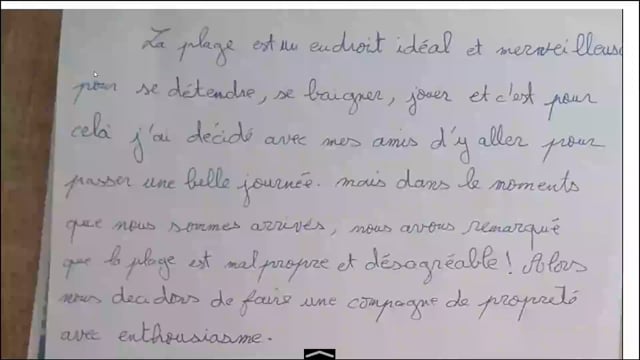 La plage est un endroit idéal et merveilleuse
pour se détendre, se baigner, jouer et c'est pour
celà j'ai décidé avec mes amis d'y aller pour
passer une belle journée. mais dans le moments
que nous sommes arrivés, nous avons remarqué
que la plage est malpropre et désagréable ! Alors
nous decidons de faire une compagne de propreté
avec enthousiasme.